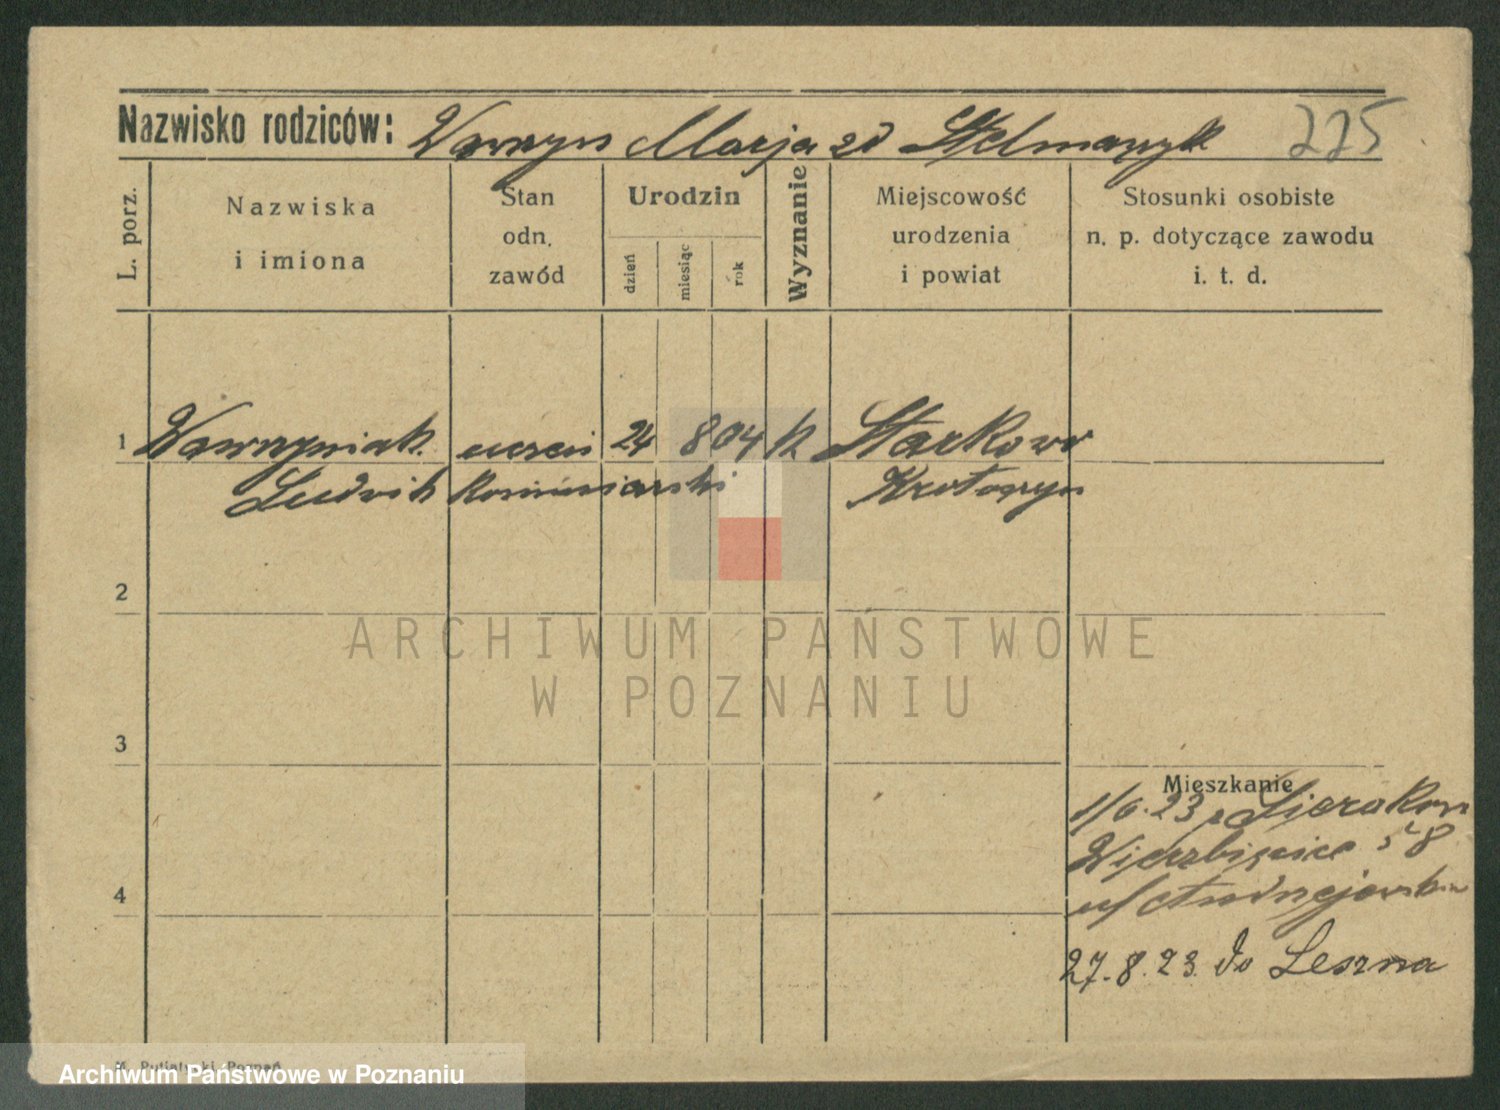 Nazwisko rodziców: Wawrzyn Marja zd Stelmaszyk 225
L. porz.
Nazwiska
i imiona
Stan
odn.
zawód
Urodzin
dzień
miesiąc
rok
Wyznanie
Miejscowość
urodzenia
i powiat
Stosunki osobiste
n. p. dotyczące zawodu
i. t. d.
1 Wawrzyniak uczeń 24 8 04 k Starkowo
Ludwik kominiarski Krotoszyn
2
3
Mieszkanie
1/6.23 z
Wierzbięcice 58
4
27.8.23. do Leszna
ARCHIWUM PAŃSTWOWE
W POZNANIU
Archiwum Państwowe w Poznaniu